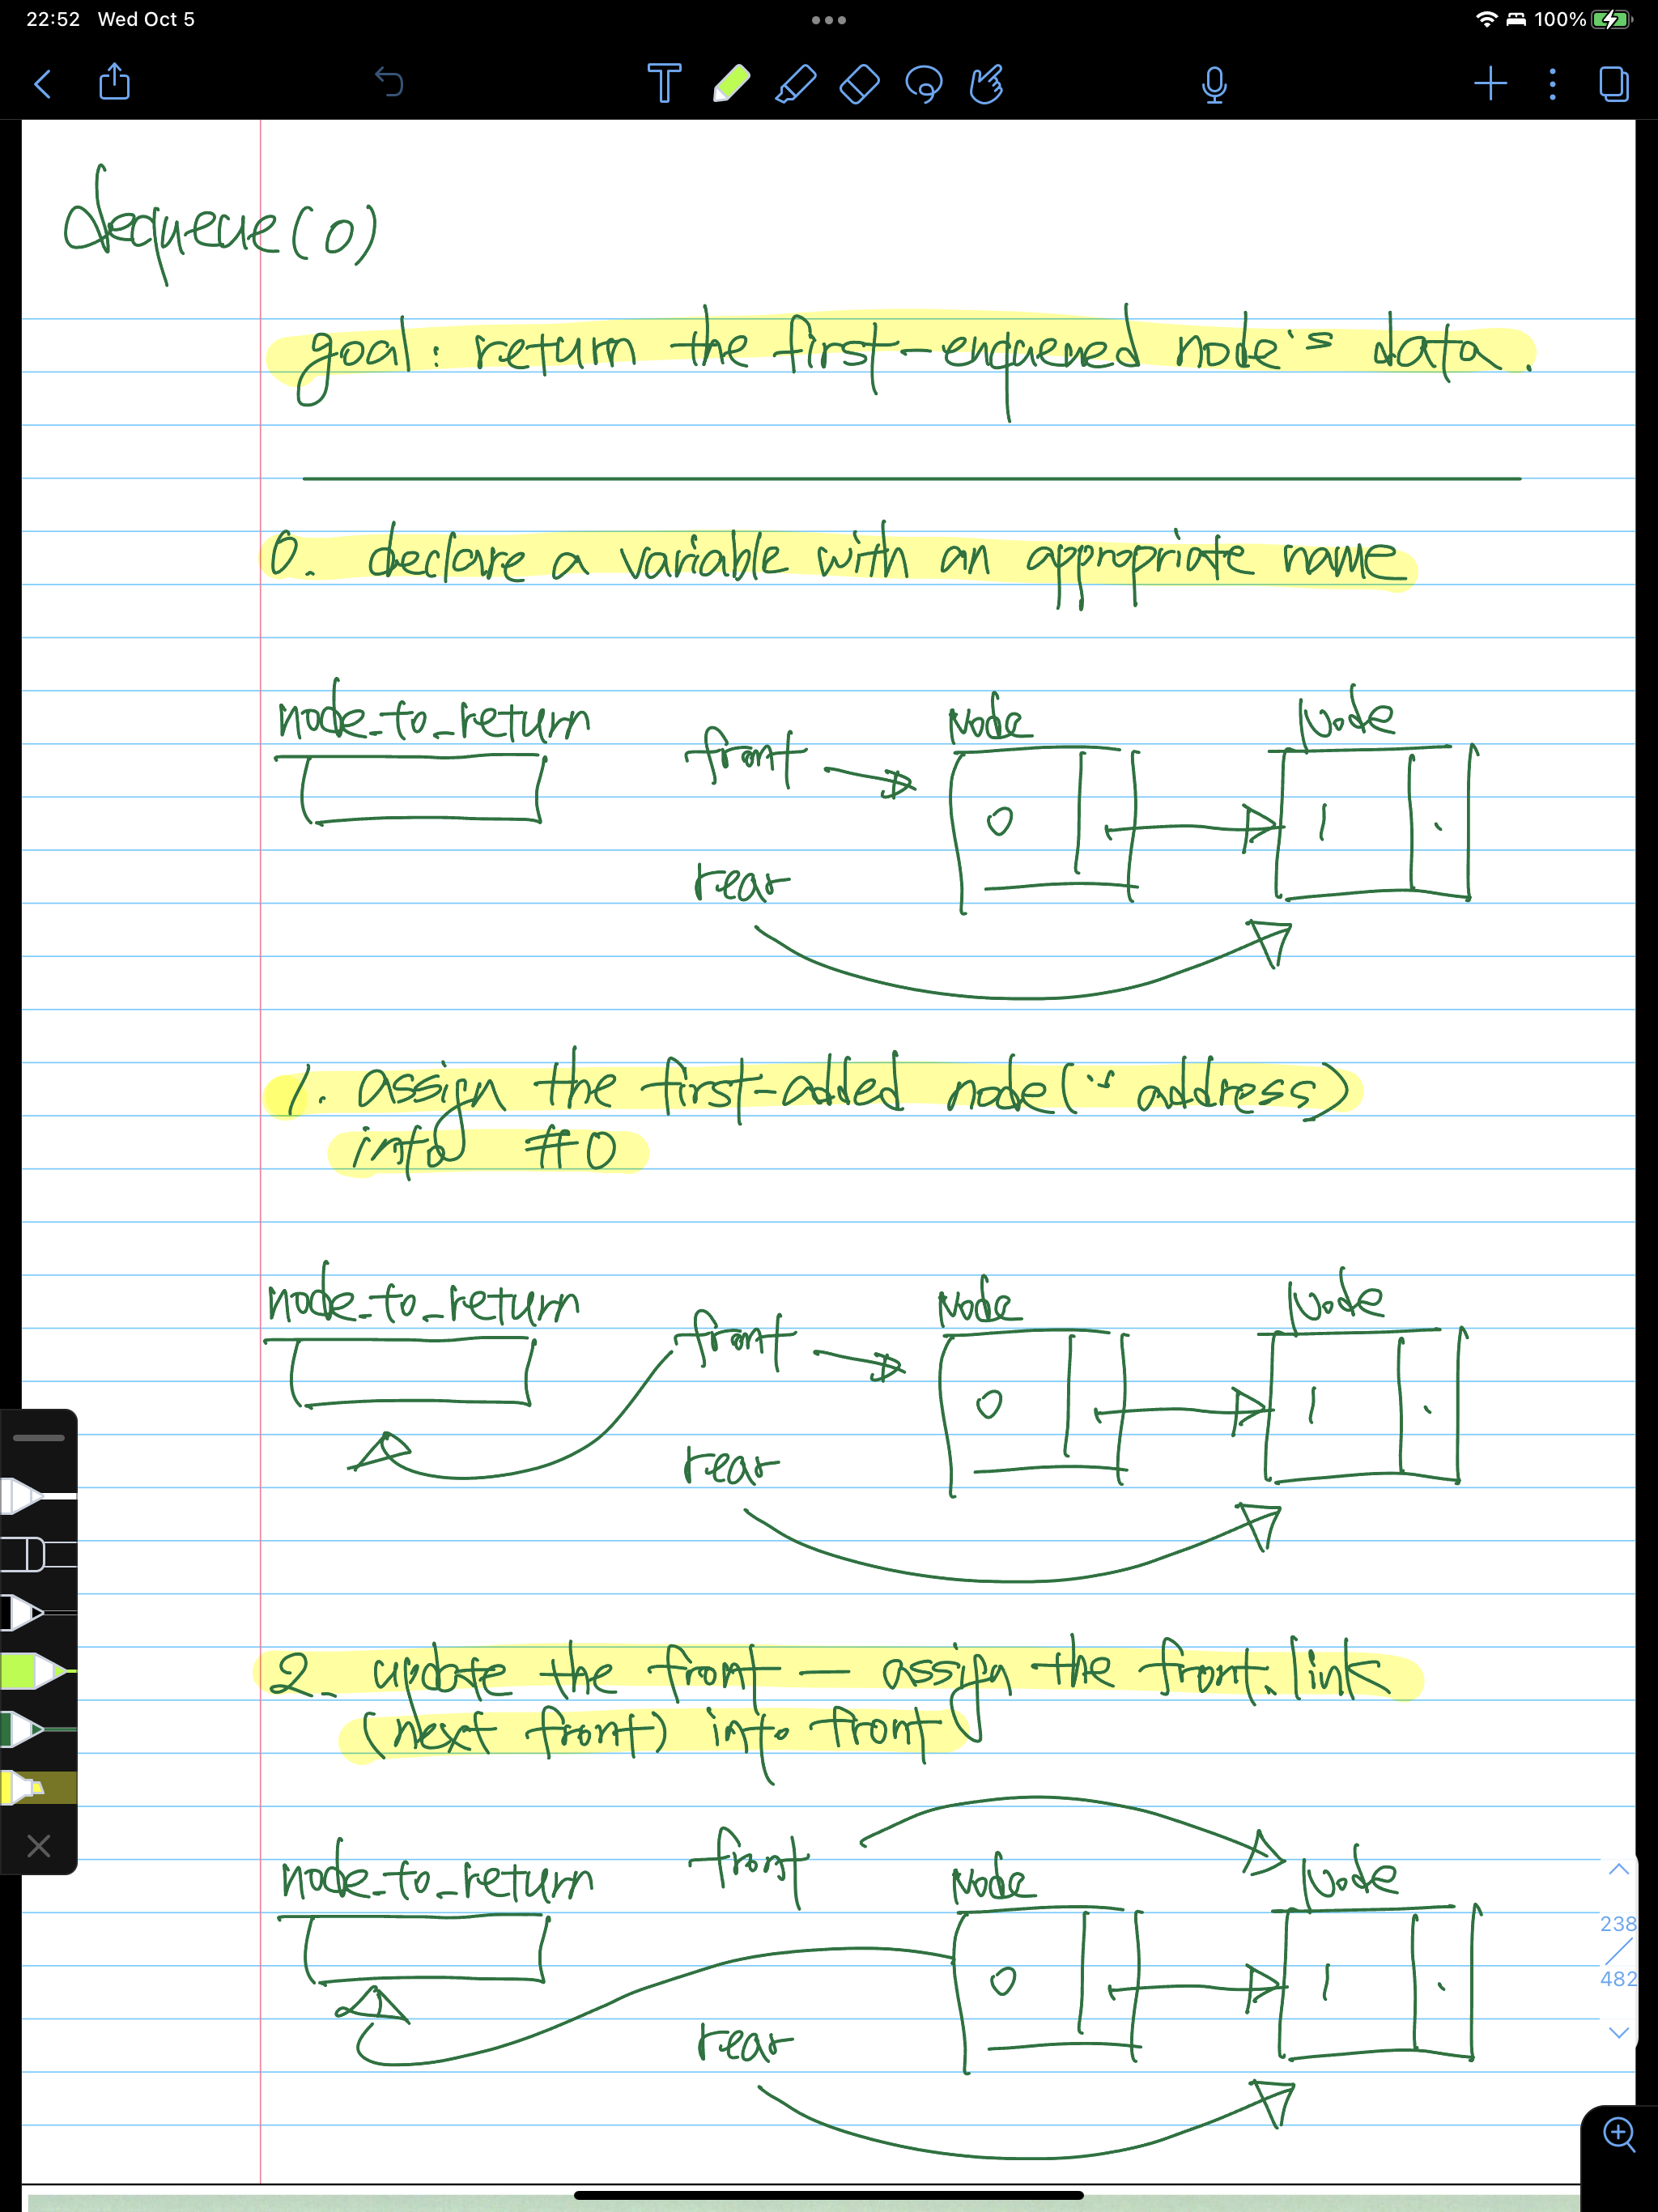 22:52 Wed Oct 5
100%
dequeue(0)
goal: return the first-enqueued node's data.
0. declare a variable with an appropriate name
node_to_return
front
Node
Node
0
1
rear
1. assign the first-added node('s address)
into #0
node_to_return
front
Node
Node
0
1
rear
2. update the front — assign the front.link
(next front) into front
node_to_return
front
Node
Node
0
1
rear
238
482